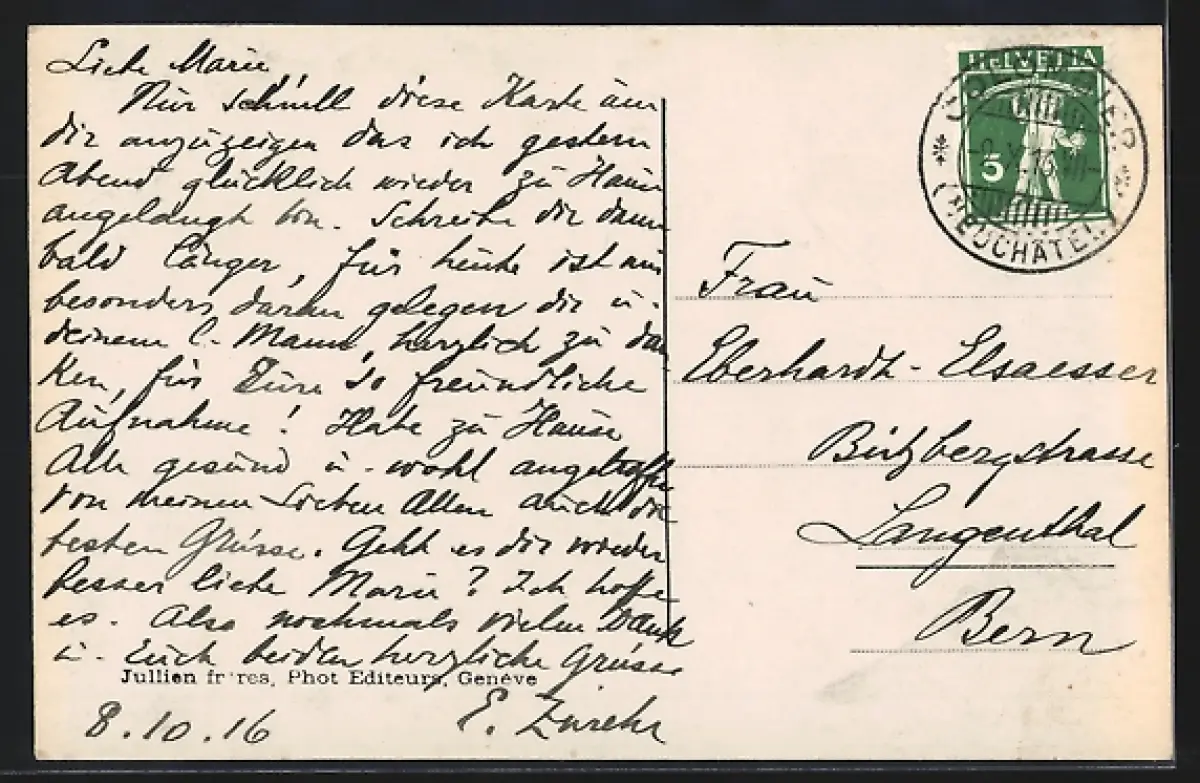 Liebe Marie
Nur schnell diese Karte um
dir anzuzeigen das ich gestern
Abend glücklich wieder zu Hause
angelangt bin. Schreibe dir dann
bald länger, für heute ist mir
besonders daran gelegen dir u.
deinem l. Mann, herzlich zu dan
ken, für Eure so freundliche
Aufnahme! Habe zu Hause
Alle gesund u. wohl angetroffen
von meinen Lieben Allen auch die
besten Grüsse. Geht es dir wieder
besser liebe Marie? Ich hoffe
es. Also nochmals vielen Dank
u. Euch beiden herzliche Grüsse
Jullien frères, Phot Editeurs, Genève
8.10.16 E.
HELVETIA
5
(NEUCHÂTEL)
Frau
Eberhardt-Elsaesser
Bützbergstrasse
Langenthal
Bern